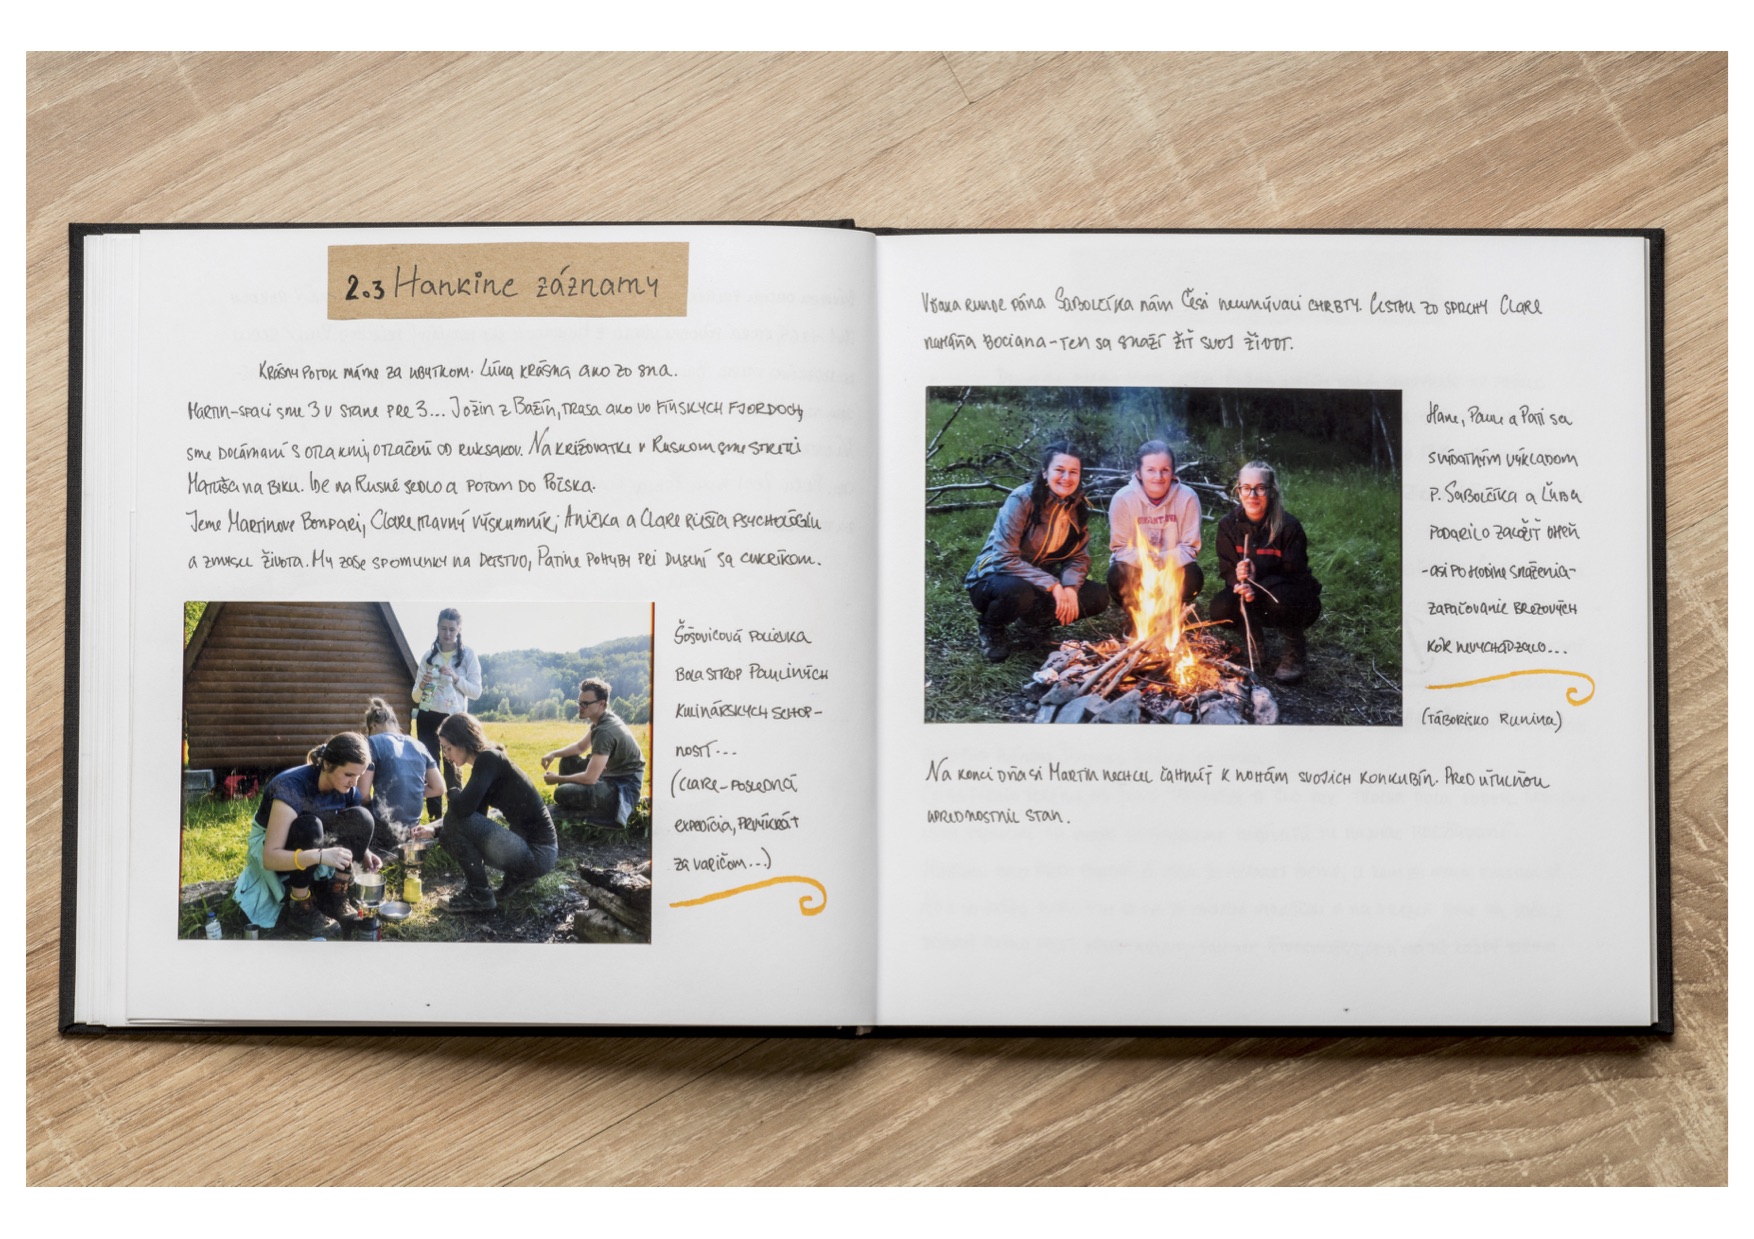 2.3 Hankine záznamy
Krásny potok máme za ubytkom. Lúka krásna ako zo sna.
Martin-spali sme 3 v stane pre 3... Jožin z Bažin, trasa ako vo Fínskych fjordoch,
sme dolámaní s otlakmi, otlačení od ruksakov. Na križovatke v Ruskom sme stretli
Matúša na biku. Ide na Ruské sedlo a potom do Poľska.
Jeme Martinove Bonpari, Clare hlavný výskumník; Anička a Clare riešia psychológiu
a zmysel života. My zase spomienky na detstvo, Patine pohyby pri dusení sa cukríkom.
Šošovicová polievka
bola strop Pauliných
kulinárskych schop-
ností...
(Clare-posledná
expedícia, prvýkrát
za varičom...)
Vďaka runde pána Sabolčíka nám Česi neumývali chrbty. Cestou zo sprchy Clare
naháňa bociana-ten sa snaží žiť svoj život.
Hane, Paule a Pati sa
výkladom
p. Sabolčíka a Ľuba
podarilo založiť oheň
-asi po hodine snaženia-
zapaľovanie brezových
kôr nevychádzalo...
(Táborisko Runina)
Na konci dňa si Martin nechcel ľahnúť k nohám svojich konkubín. Pred útulňou
uprednostnil stan.